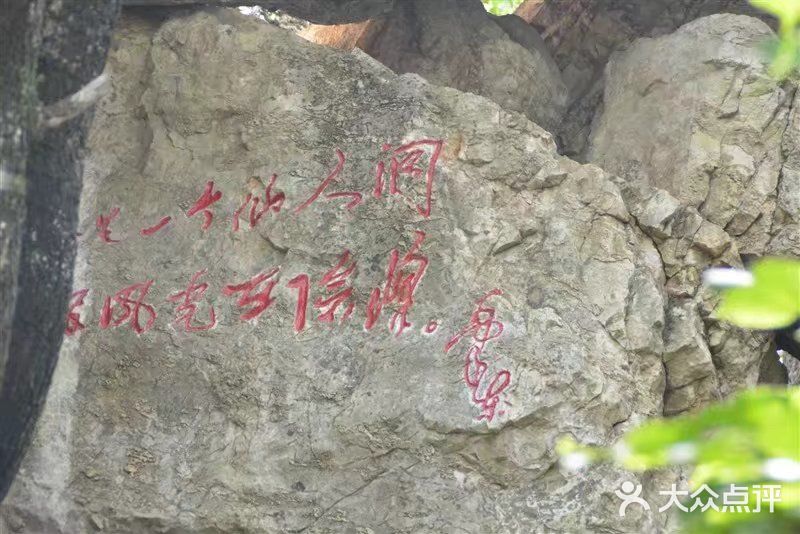 生一个仙人洞
风光在险峰。
毛泽东
大众点评